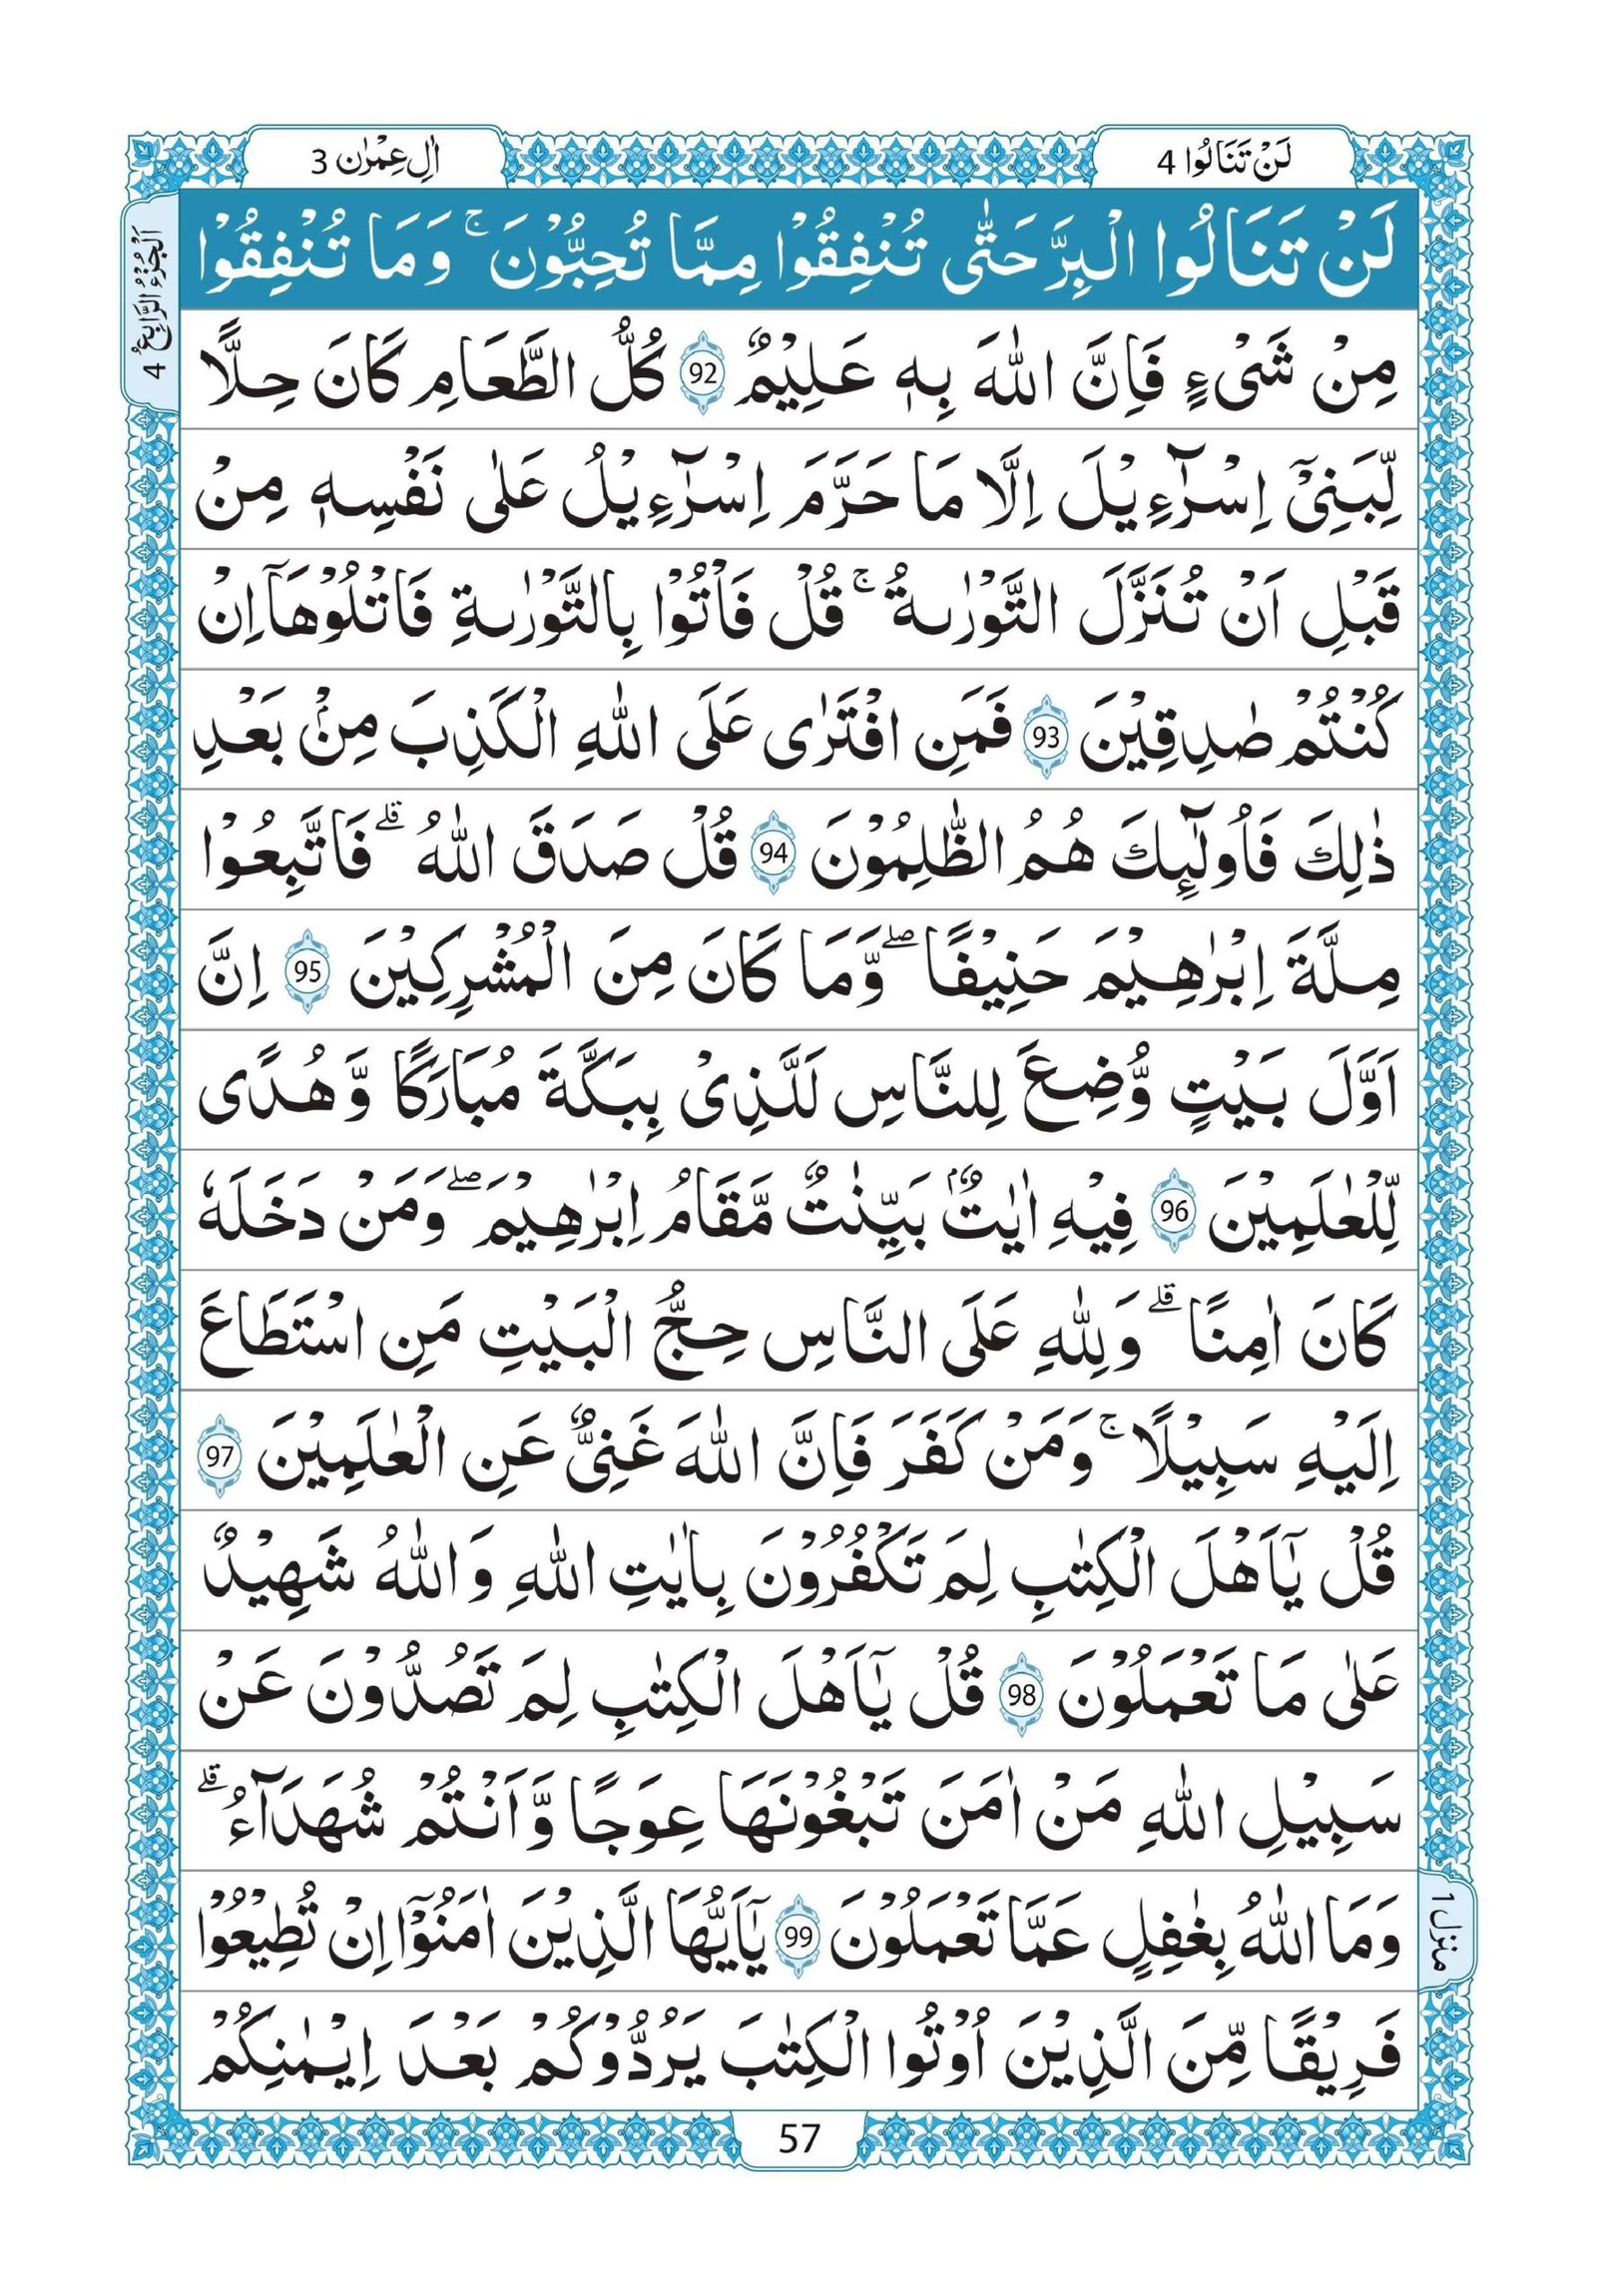 لَنْ تَنَالُوا 4
اٰلِ عِمْرٰن 3
اَلْجُزْءُ الرَّابِعُ 4
لَنْ تَنَالُوا الْبِرَّ حَتّٰى تُنْفِقُوْا مِمَّا تُحِبُّوْنَ ۚ وَمَا تُنْفِقُوْا
مِنْ شَیْءٍ فَاِنَّ اللّٰهَ بِهٖ عَلِيْمٌ 92 كُلُّ الطَّعَامِ كَانَ حِلًّا
لِّبَنِیْۤ اِسْرَآءِيْلَ اِلَّا مَا حَرَّمَ اِسْرَآءِيْلُ عَلٰى نَفْسِهٖ مِنْ
قَبْلِ اَنْ تُنَزَّلَ التَّوْرٰىةُ ۚ قُلْ فَاْتُوْا بِالتَّوْرٰىةِ فَاتْلُوْهَاۤ اِنْ
كُنْتُمْ صٰدِقِيْنَ 93 فَمَنِ افْتَرٰى عَلَى اللّٰهِ الْكَذِبَ مِنْۢ بَعْدِ
ذٰلِكَ فَاُولٰٓئِكَ هُمُ الظّٰلِمُوْنَ 94 قُلْ صَدَقَ اللّٰهُ ۗ فَاتَّبِعُوْا
مِلَّةَ اِبْرٰهِيْمَ حَنِيْفًا ۖ وَّمَا كَانَ مِنَ الْمُشْرِكِيْنَ 95 اِنَّ
اَوَّلَ بَيْتٍ وُّضِعَ لِلنَّاسِ لَلَّذِیْ بِبَكَّةَ مُبَارَكًا وَّهُدًى
لِّلْعٰلَمِيْنَ 96 فِيْهِ اٰيٰتٌۢ بَيِّنٰتٌ مَّقَامُ اِبْرٰهِيْمَ ۖ وَمَنْ دَخَلَهٗ
كَانَ اٰمِنًا ۗ وَلِلّٰهِ عَلَى النَّاسِ حِجُّ الْبَيْتِ مَنِ اسْتَطَاعَ
اِلَيْهِ سَبِيْلًا ۚ وَمَنْ كَفَرَ فَاِنَّ اللّٰهَ غَنِیٌّ عَنِ الْعٰلَمِيْنَ 97
قُلْ يٰۤاَهْلَ الْكِتٰبِ لِمَ تَكْفُرُوْنَ بِاٰيٰتِ اللّٰهِ وَاللّٰهُ شَهِيْدٌ
عَلٰى مَا تَعْمَلُوْنَ 98 قُلْ يٰۤاَهْلَ الْكِتٰبِ لِمَ تَصُدُّوْنَ عَنْ
سَبِيْلِ اللّٰهِ مَنْ اٰمَنَ تَبْغُوْنَهَا عِوَجًا وَّاَنْتُمْ شُهَدَآءُ ۗ
وَمَا اللّٰهُ بِغٰفِلٍ عَمَّا تَعْمَلُوْنَ 99 يٰۤاَيُّهَا الَّذِيْنَ اٰمَنُوْۤا اِنْ تُطِيْعُوْا
فَرِيْقًا مِّنَ الَّذِيْنَ اُوْتُوا الْكِتٰبَ يَرُدُّوْكُمْ بَعْدَ اِيْمٰنِكُمْ
منزل 1
57